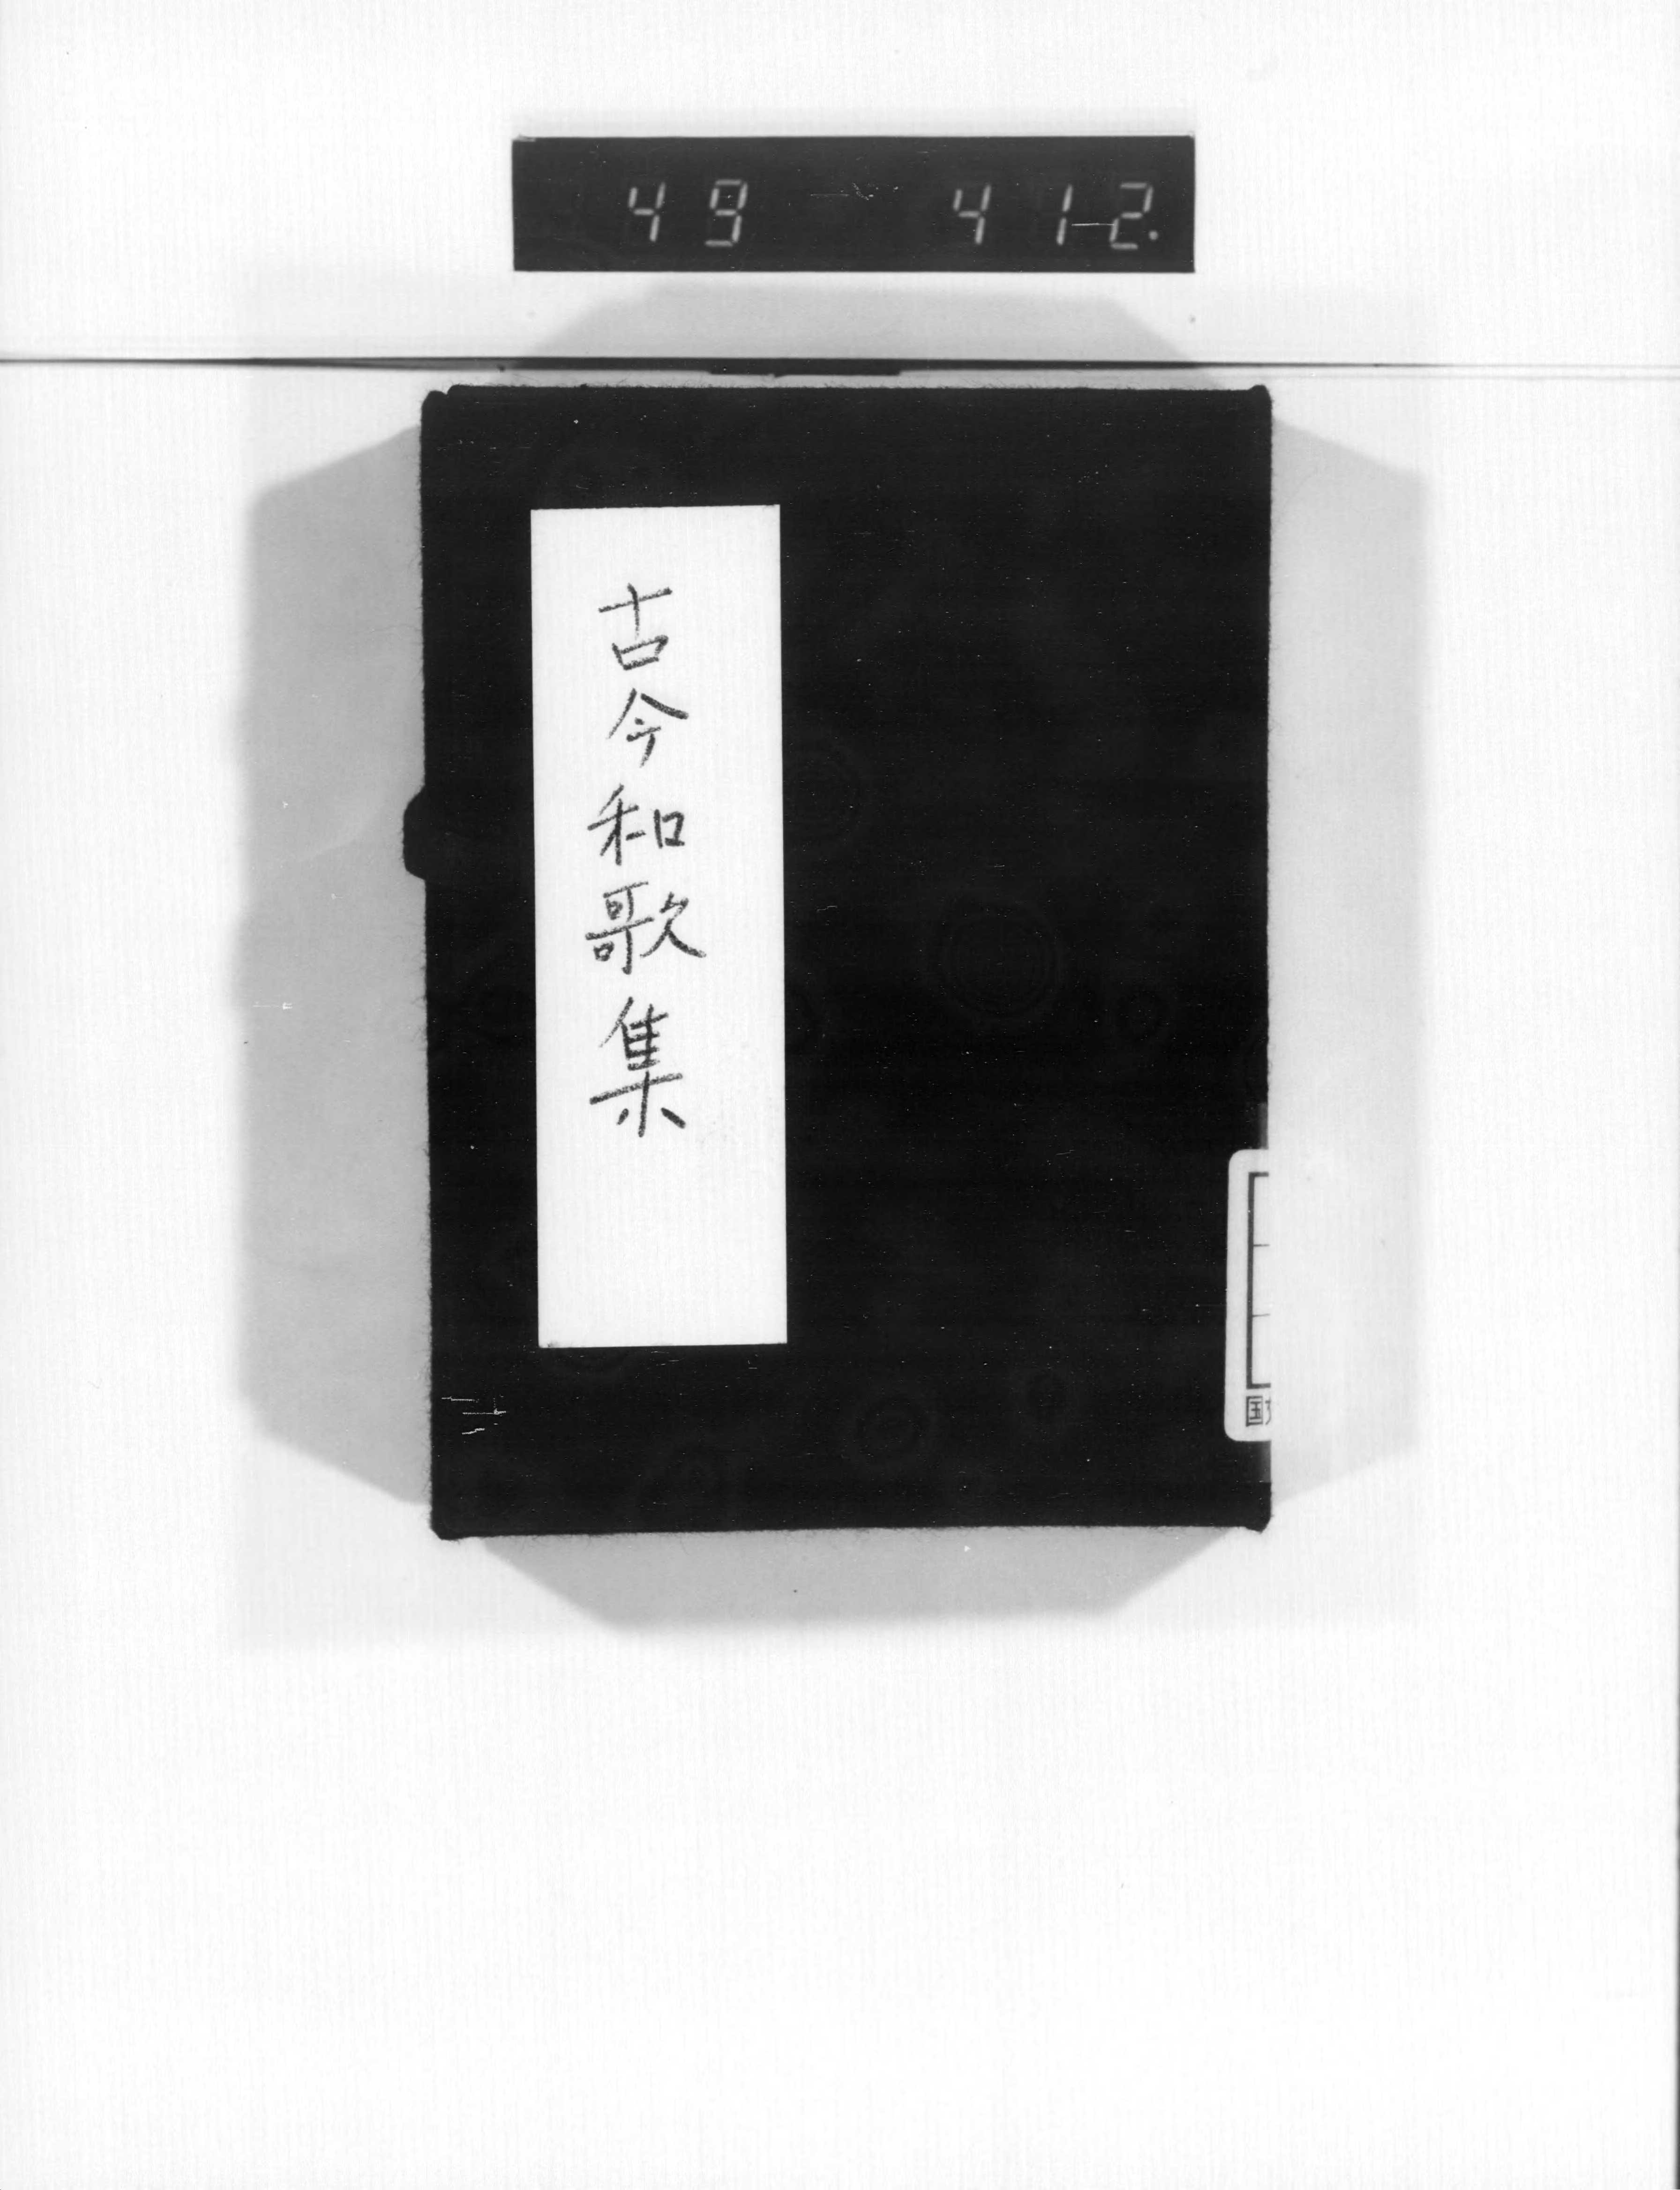 49 412.
古今和歌集
国